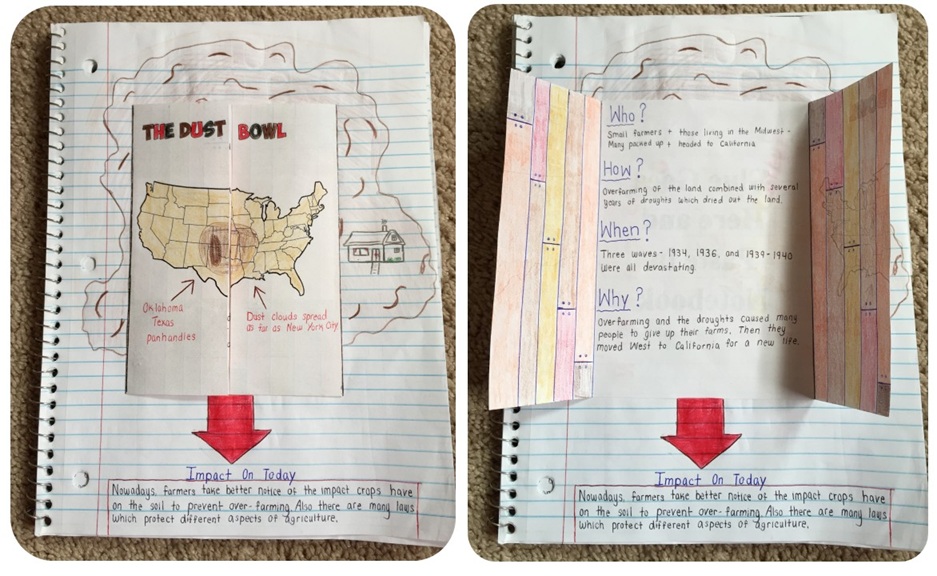 THE DUST BOWL
Oklahoma
Texas
panhandles
Dust clouds spread
as far as New York City
Impact On Today
Nowadays, farmers take better notice of the impact crops have
on the soil to prevent over-farming. Also there are many laws
which protect different aspects of agriculture.
Who?
Small farmers + those living in the Midwest -
Many packed up + headed to California
How?
Overfarming of the land combined with several
years of droughts which dried out the land.
When?
Three waves - 1934, 1936, and 1939-1940
were all devastating.
Why?
Overfarming and the droughts caused many
people to give up their farms. Then they
moved West to California for a new life.
Impact On Today
Nowadays, farmers take better notice of the impact crops have
on the soil to prevent over-farming. Also there are many laws
which protect different aspects of agriculture.